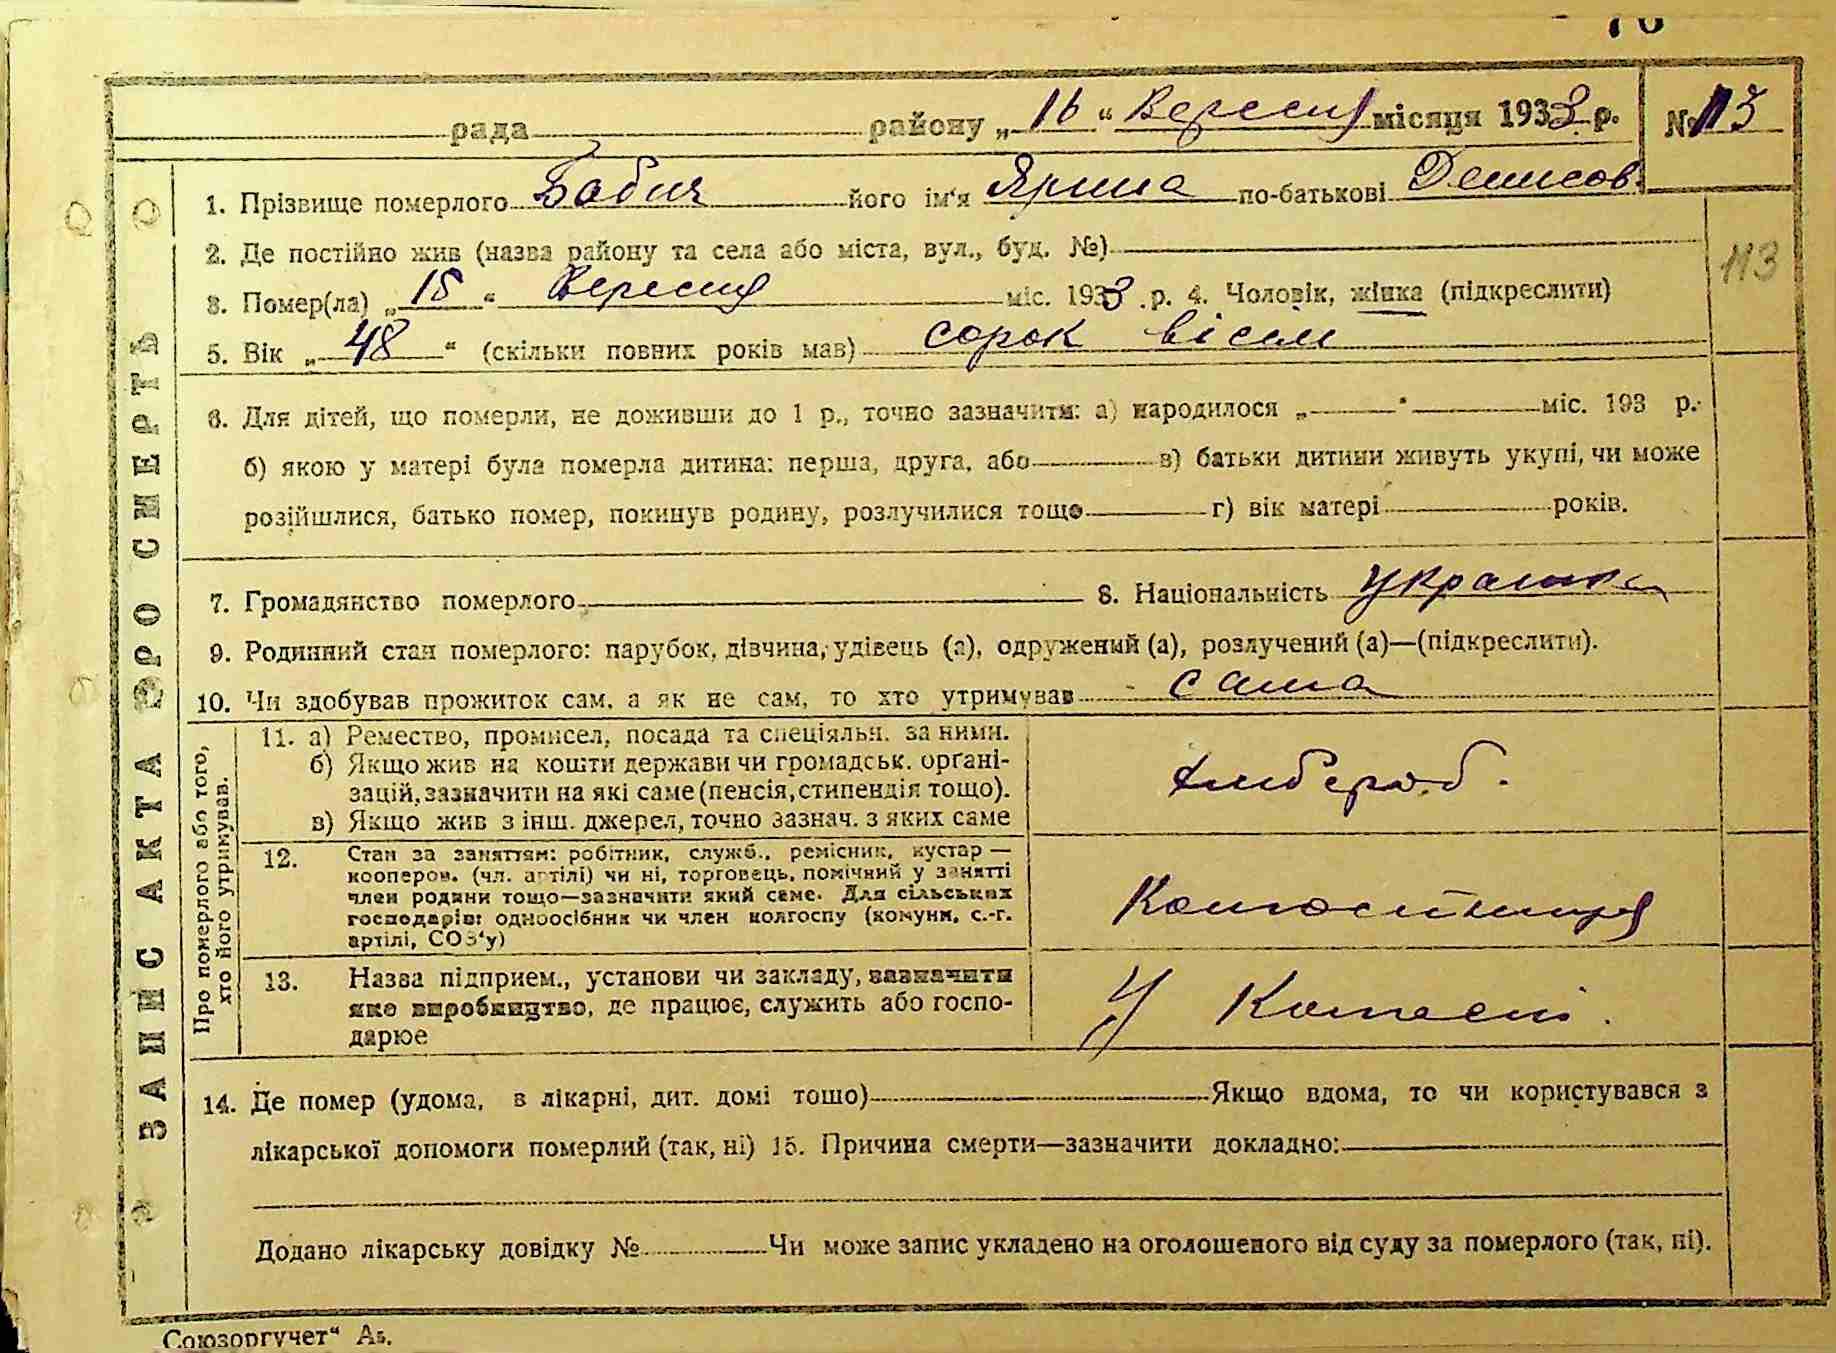 рада района „16“ Вересня місяця 1933 р. № 113
1. Прізвище померлого Бабич його ім'я Ярина по-батькові Денисов.
2. Де постійно жив (назва району та села або міста, вул., буд. №)
113
3. Помер(ла) „15“ Вересня міс. 1933 .р. 4. Чоловік, жінка (підкреслити)
5. Вік „48“ (скільки повних років мав) сорок вісім
6. Для дітей, що померли, не доживши до 1 р., точно зазначити: а) народилося „ “ міс. 193 р.
б) якою у матері була померла дитина: перша, друга, або в) батьки дитини живуть укупі, чи може
розійшлися, батько помер, покинув родину, розлучилися тощо г) вік матері років.
7. Громадянство померлого 8. Національність
9. Родинний стан померлого: парубок, дівчина, удівець (а), одружений (а), розлучений (а)—(підкреслити).
10. Чи здобував прожиток сам, а як не сам, то хто утримував сама
ЗАПИС АКТА ПРО СМЕРТЬ
Про померлого або того,
хто його утримував.
11. а) Ремество, промисел, посада та спеціяльн. за ними.
б) Якщо жив на кошти держави чи громадськ. організацій, зазначити на які саме (пенсія, стипендія тощо).
в) Якщо жив з інш. джерел, точно зазнач. з яких саме
хлібороб.
12. Стан за заняттям: робітник, служб., ремісник, кустар —
кооперов. (чл. артілі) чи ні, торговець, помічний у занятті
член родини тощо—зазначити який саме. Для сільських
господарів: одноосібник чи член колгоспу (комуни, с.-г.
артілі, СОЗ'у)
13. Назва підприєм., установи чи закладу, зазначити
яке виробництво, де працює, служить або госпо-
дарює
У
14. Де помер (удома, в лікарні, дит. домі тощо) Якщо вдома, то чи користувався з
лікарської допомоги померлий (так, ні) 15. Причина смерти—зазначити докладно:
Додано лікарську довідку № Чи може запис укладено на оголошеного від суду за померлого (так, ні).
Союзоргучет“